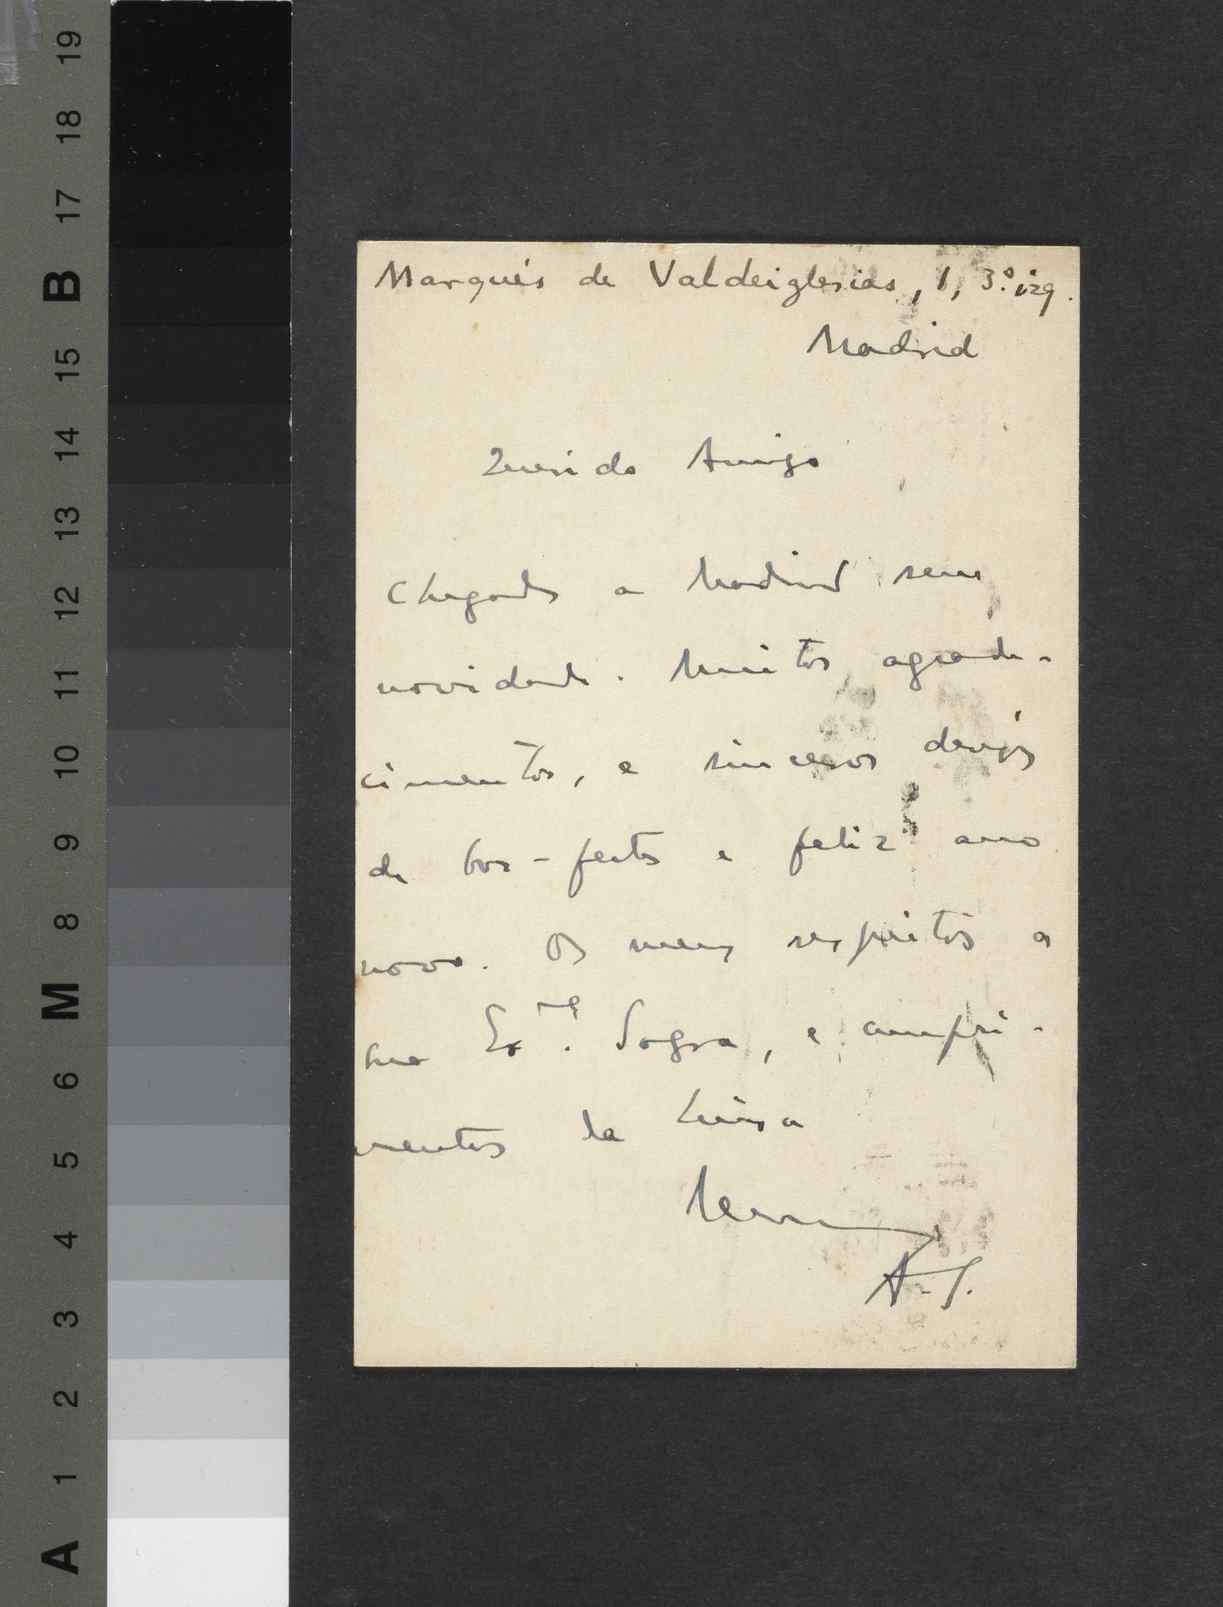 19
18
17
B
15
14
13
12
11
10
9
8
M
6
5
4
3
2
1
A
Marqués de Valdeiglesias, 1, 3.º izq.
Madrid
Querido Amigo
Chegado a Madrid sem
novidade. Muitos agrade-
cimentos, e sinceros desejos
de boas-festas e feliz ano
novo. Os meus respeitos a
sua Ex.ma Sogra, e cumpri-
mentos da Luisa
A. S.